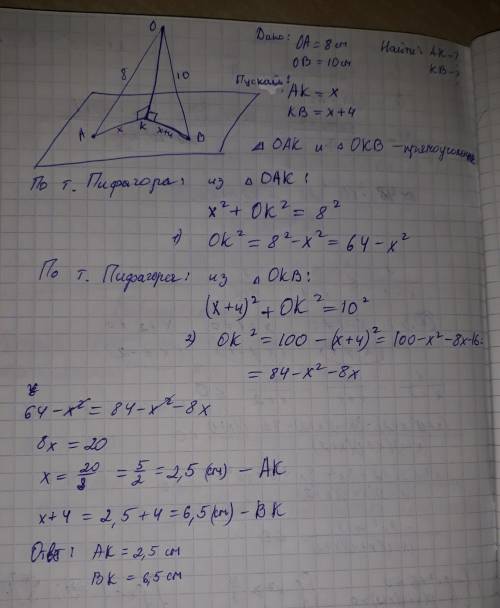 Дано: OA = 8 см Найти: AK-?
OB = 10 см KB-?
Пускай:
AK = x
KB = x+4
△ OAK и △ OKB - прямоугольные
O
8
10
A
x
K
x+4
B
По т. Пифагора: из △ OAK:
x² + OK² = 8²
1) OK² = 8² - x² = 64 - x²
По т. Пифагора: из △ OKB:
(x+4)² + OK² = 10²
2) OK² = 100 - (x+4)² = 100 - x² - 8x - 16 =
= 84 - x² - 8x
64 - x² = 84 - x² - 8x
8x = 20
x = 20/8 = 5/2 = 2,5 (см) - AK
x+4 = 2,5 + 4 = 6,5 (см) - BK
Ответ: AK = 2,5 см
BK = 6,5 см